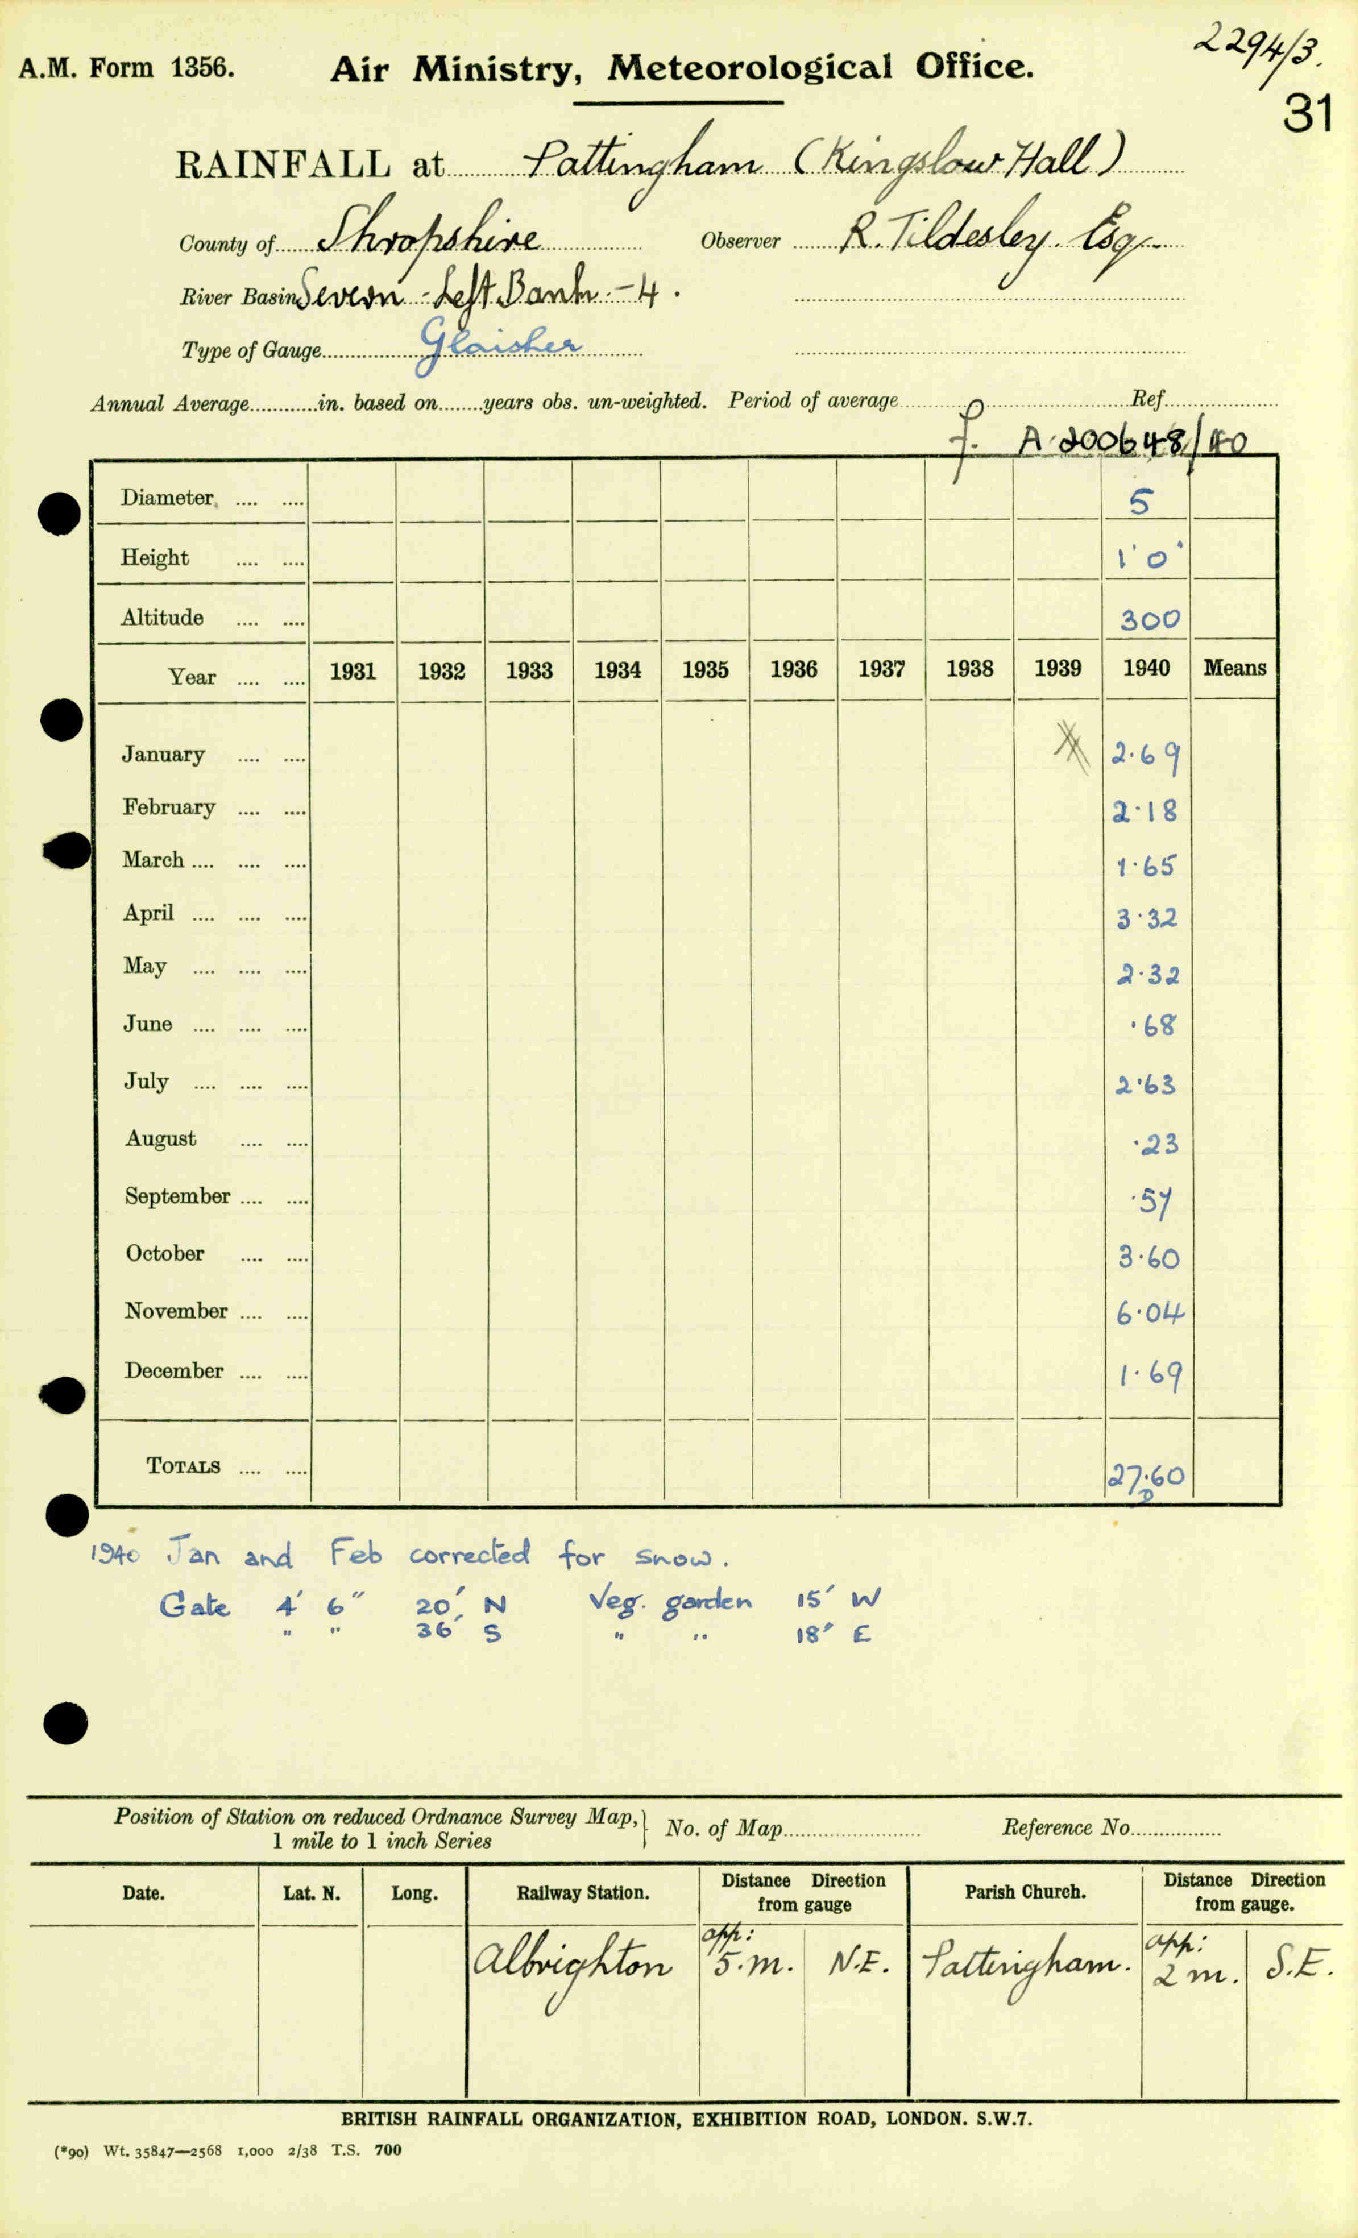 2294/3.
A.M. Form 1356. Air Ministry, Meteorological Office.
31
RAINFALL at Pattingham (Kingslow Hall)
County of Shropshire Observer R. Tildesley Esq
River Basin Severn - Left Bank - 4.
Type of Gauge Glaisher
Annual Average............in. based on........years obs. un-weighted. Period of average Ref.
f. A 200648/40
Diameter .... .... 5
Height .... .... 1' 0"
Altitude .... .... 300
Year .... .... 1931 1932 1933 1934 1935 1936 1937 1938 1939 1940 Means
January .... .... 2.69
February .... .... 2.18
March .... .... .... 1.65
April .... .... .... 3.32
May .... .... .... 2.32
June .... .... .... .68
July .... .... .... 2.63
August .... .... .23
September .... .... .57
October .... .... 3.60
November .... .... 6.04
December .... .... 1.69
TOTALS .... .... 27.60
1940 Jan and Feb corrected for snow.
Gate 4' 6" 20' N Veg. garden 15' W
" " 36' S " " 18' E
Position of Station on reduced Ordnance Survey Map, 1 mile to 1 inch Series } No. of Map Reference No.
Date. Lat. N. Long. Railway Station. Distance Direction from gauge Parish Church. Distance Direction from gauge.
Albrighton app: 5.m. N.E. Pattingham. app: 2 m. S.E.
BRITISH RAINFALL ORGANIZATION, EXHIBITION ROAD, LONDON. S.W.7.
(*90) Wt. 35847—2568 1,000 2/38 T.S. 700